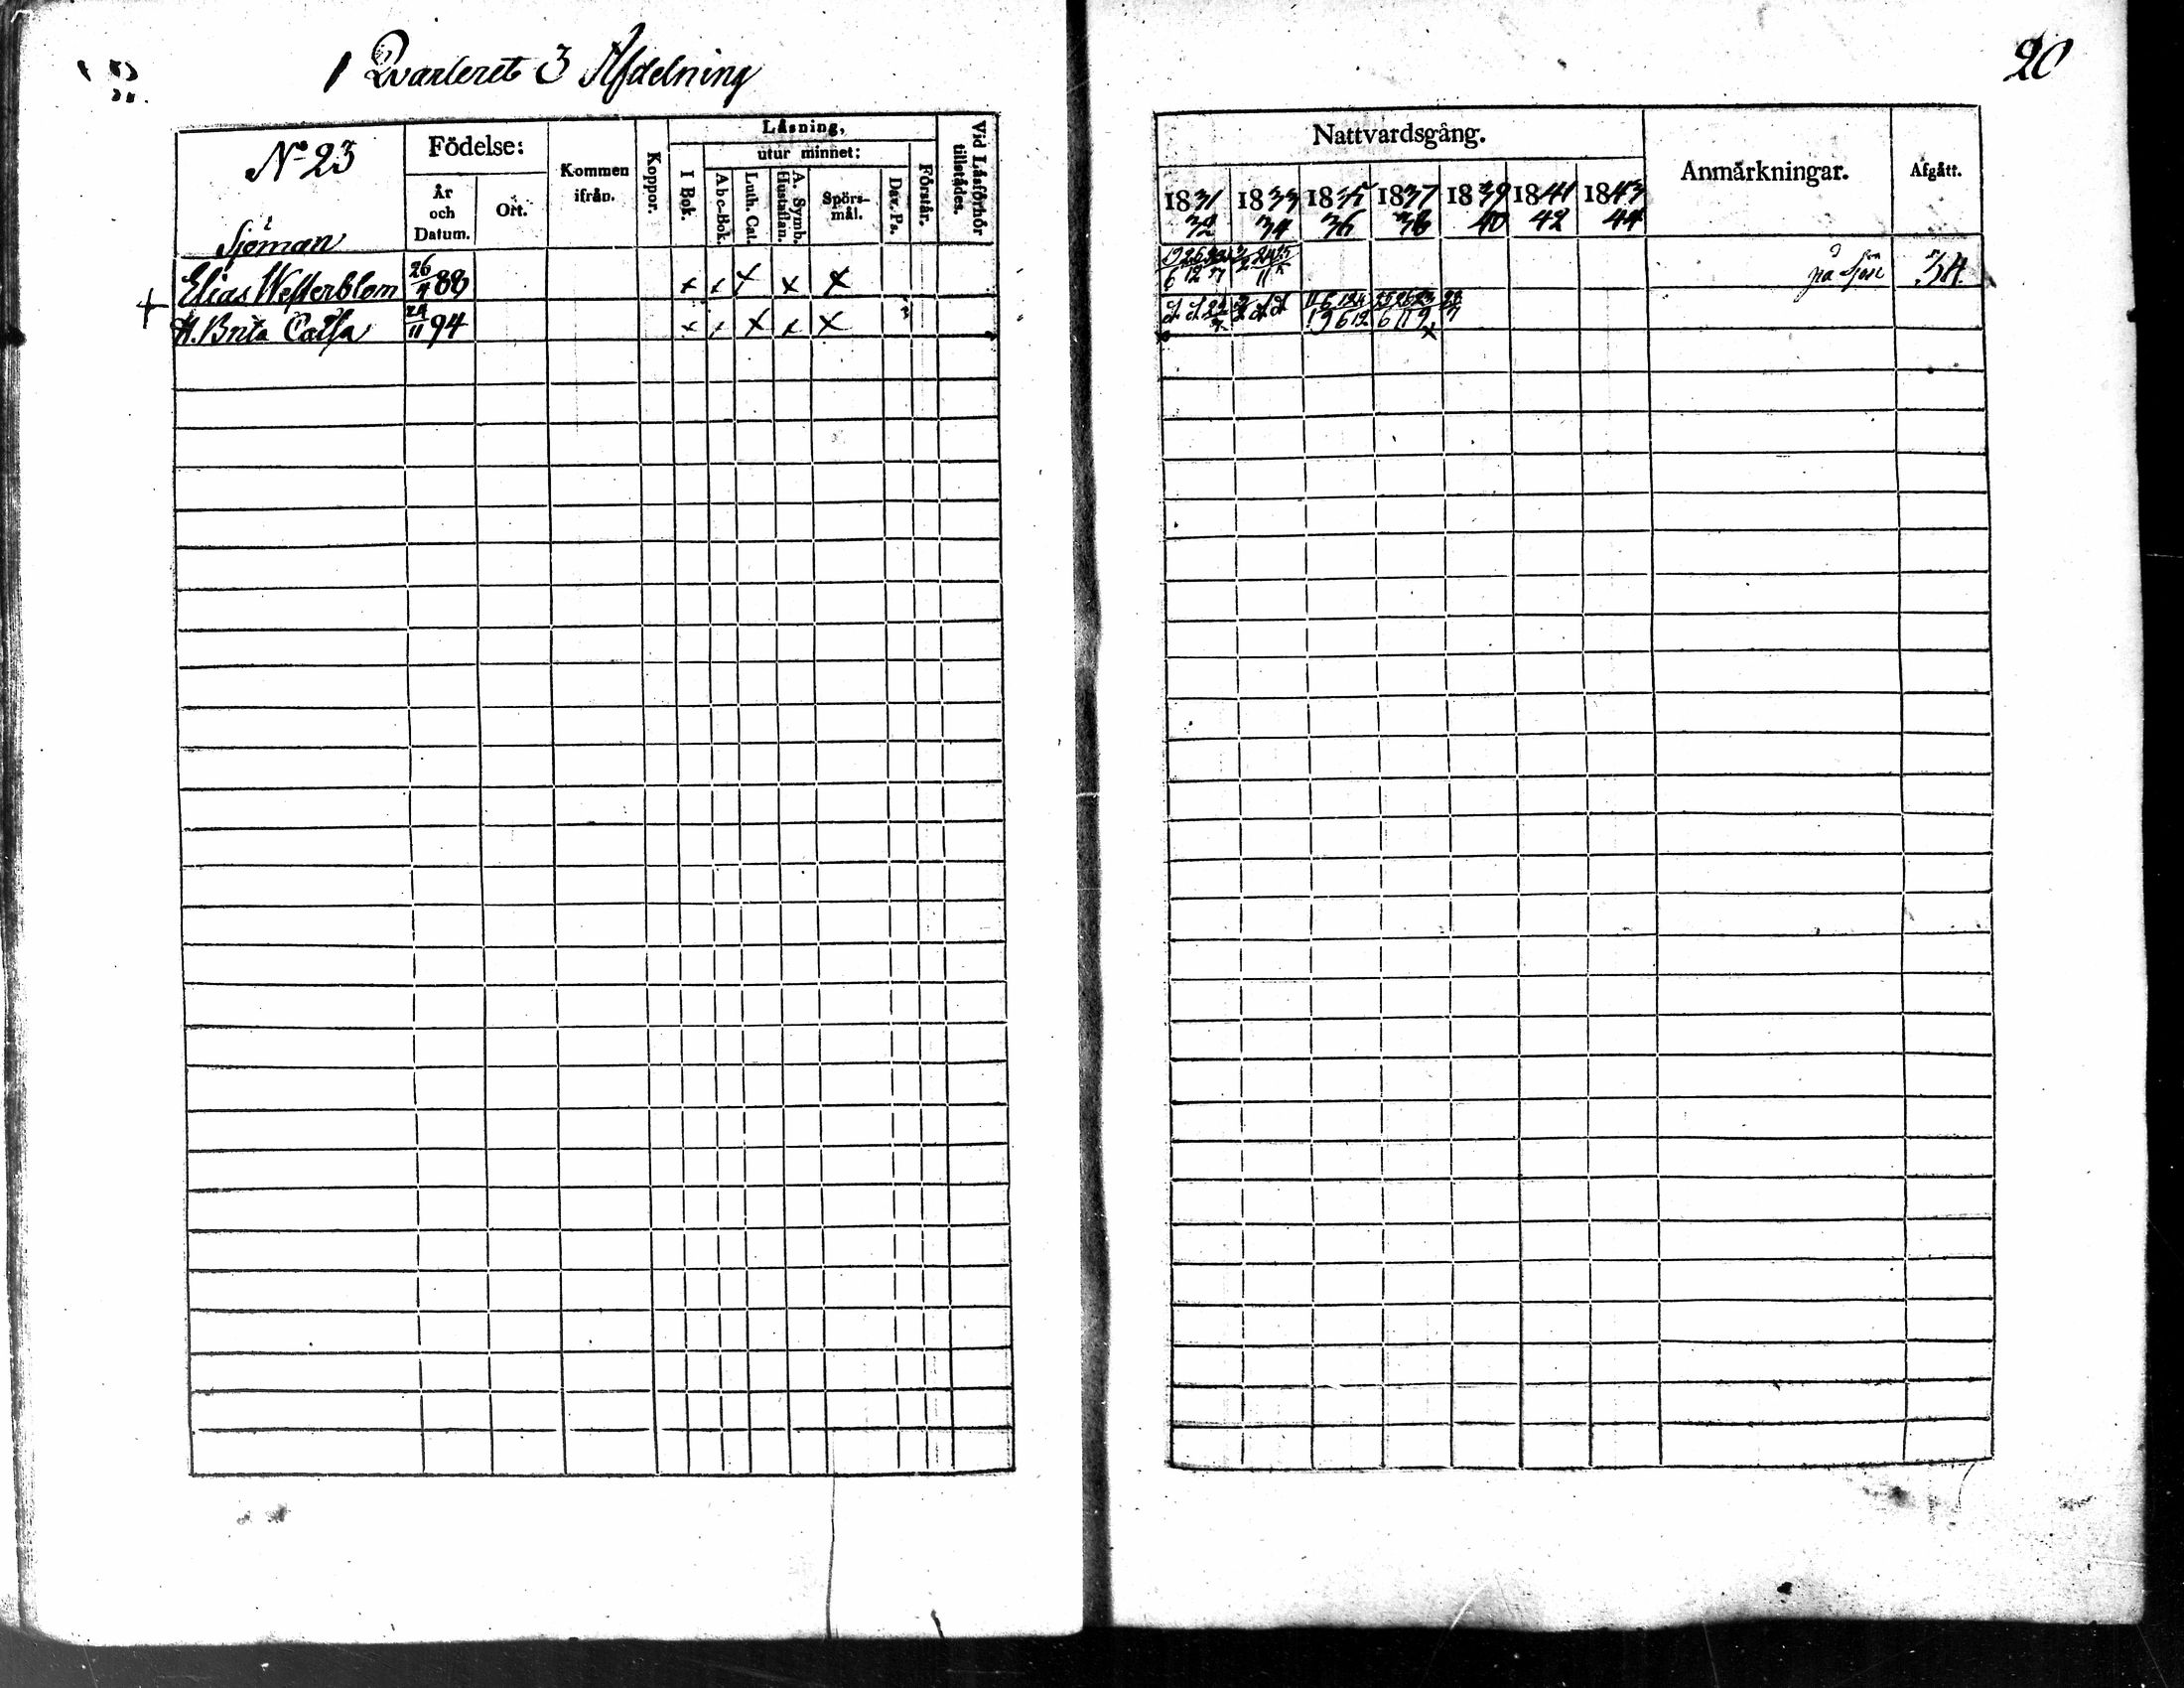 1 Qvarteret 3 Afdelning
20
No 23
Födelse:
År och Datum.
Ort.
Kommen ifrån.
Koppor.
Läsning,
I Bok.
utur minnet:
Abc-Bok.
Luth. Cat.
A. Symb. Hustaflan.
Spörs-mål.
Dav. Ps.
Förstår.
Vid Läsförhör tillstädes.
Nattvardsgång.
1831 32
1833 34
1835 36
1837 38
1839 40
1841 42
1843 44
Anmärkningar.
Afgått.
Sjöman
Elias Westerblom 26/4 88 x x x x x på Sjön 34
+ H. Brita Cajsa 24/11 94 x x x x x